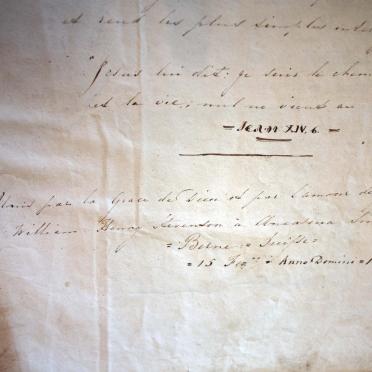 et rend les plus simples inte
"Jesus lui dit: je suis le chem
et la vie; nul ne vient au
= JEAN XIV. 6. =
par la Grace de Dieu et par l'amour de
William Henry Stevenson à
= Berne = Suisse
= 15 Anno Domini = 1